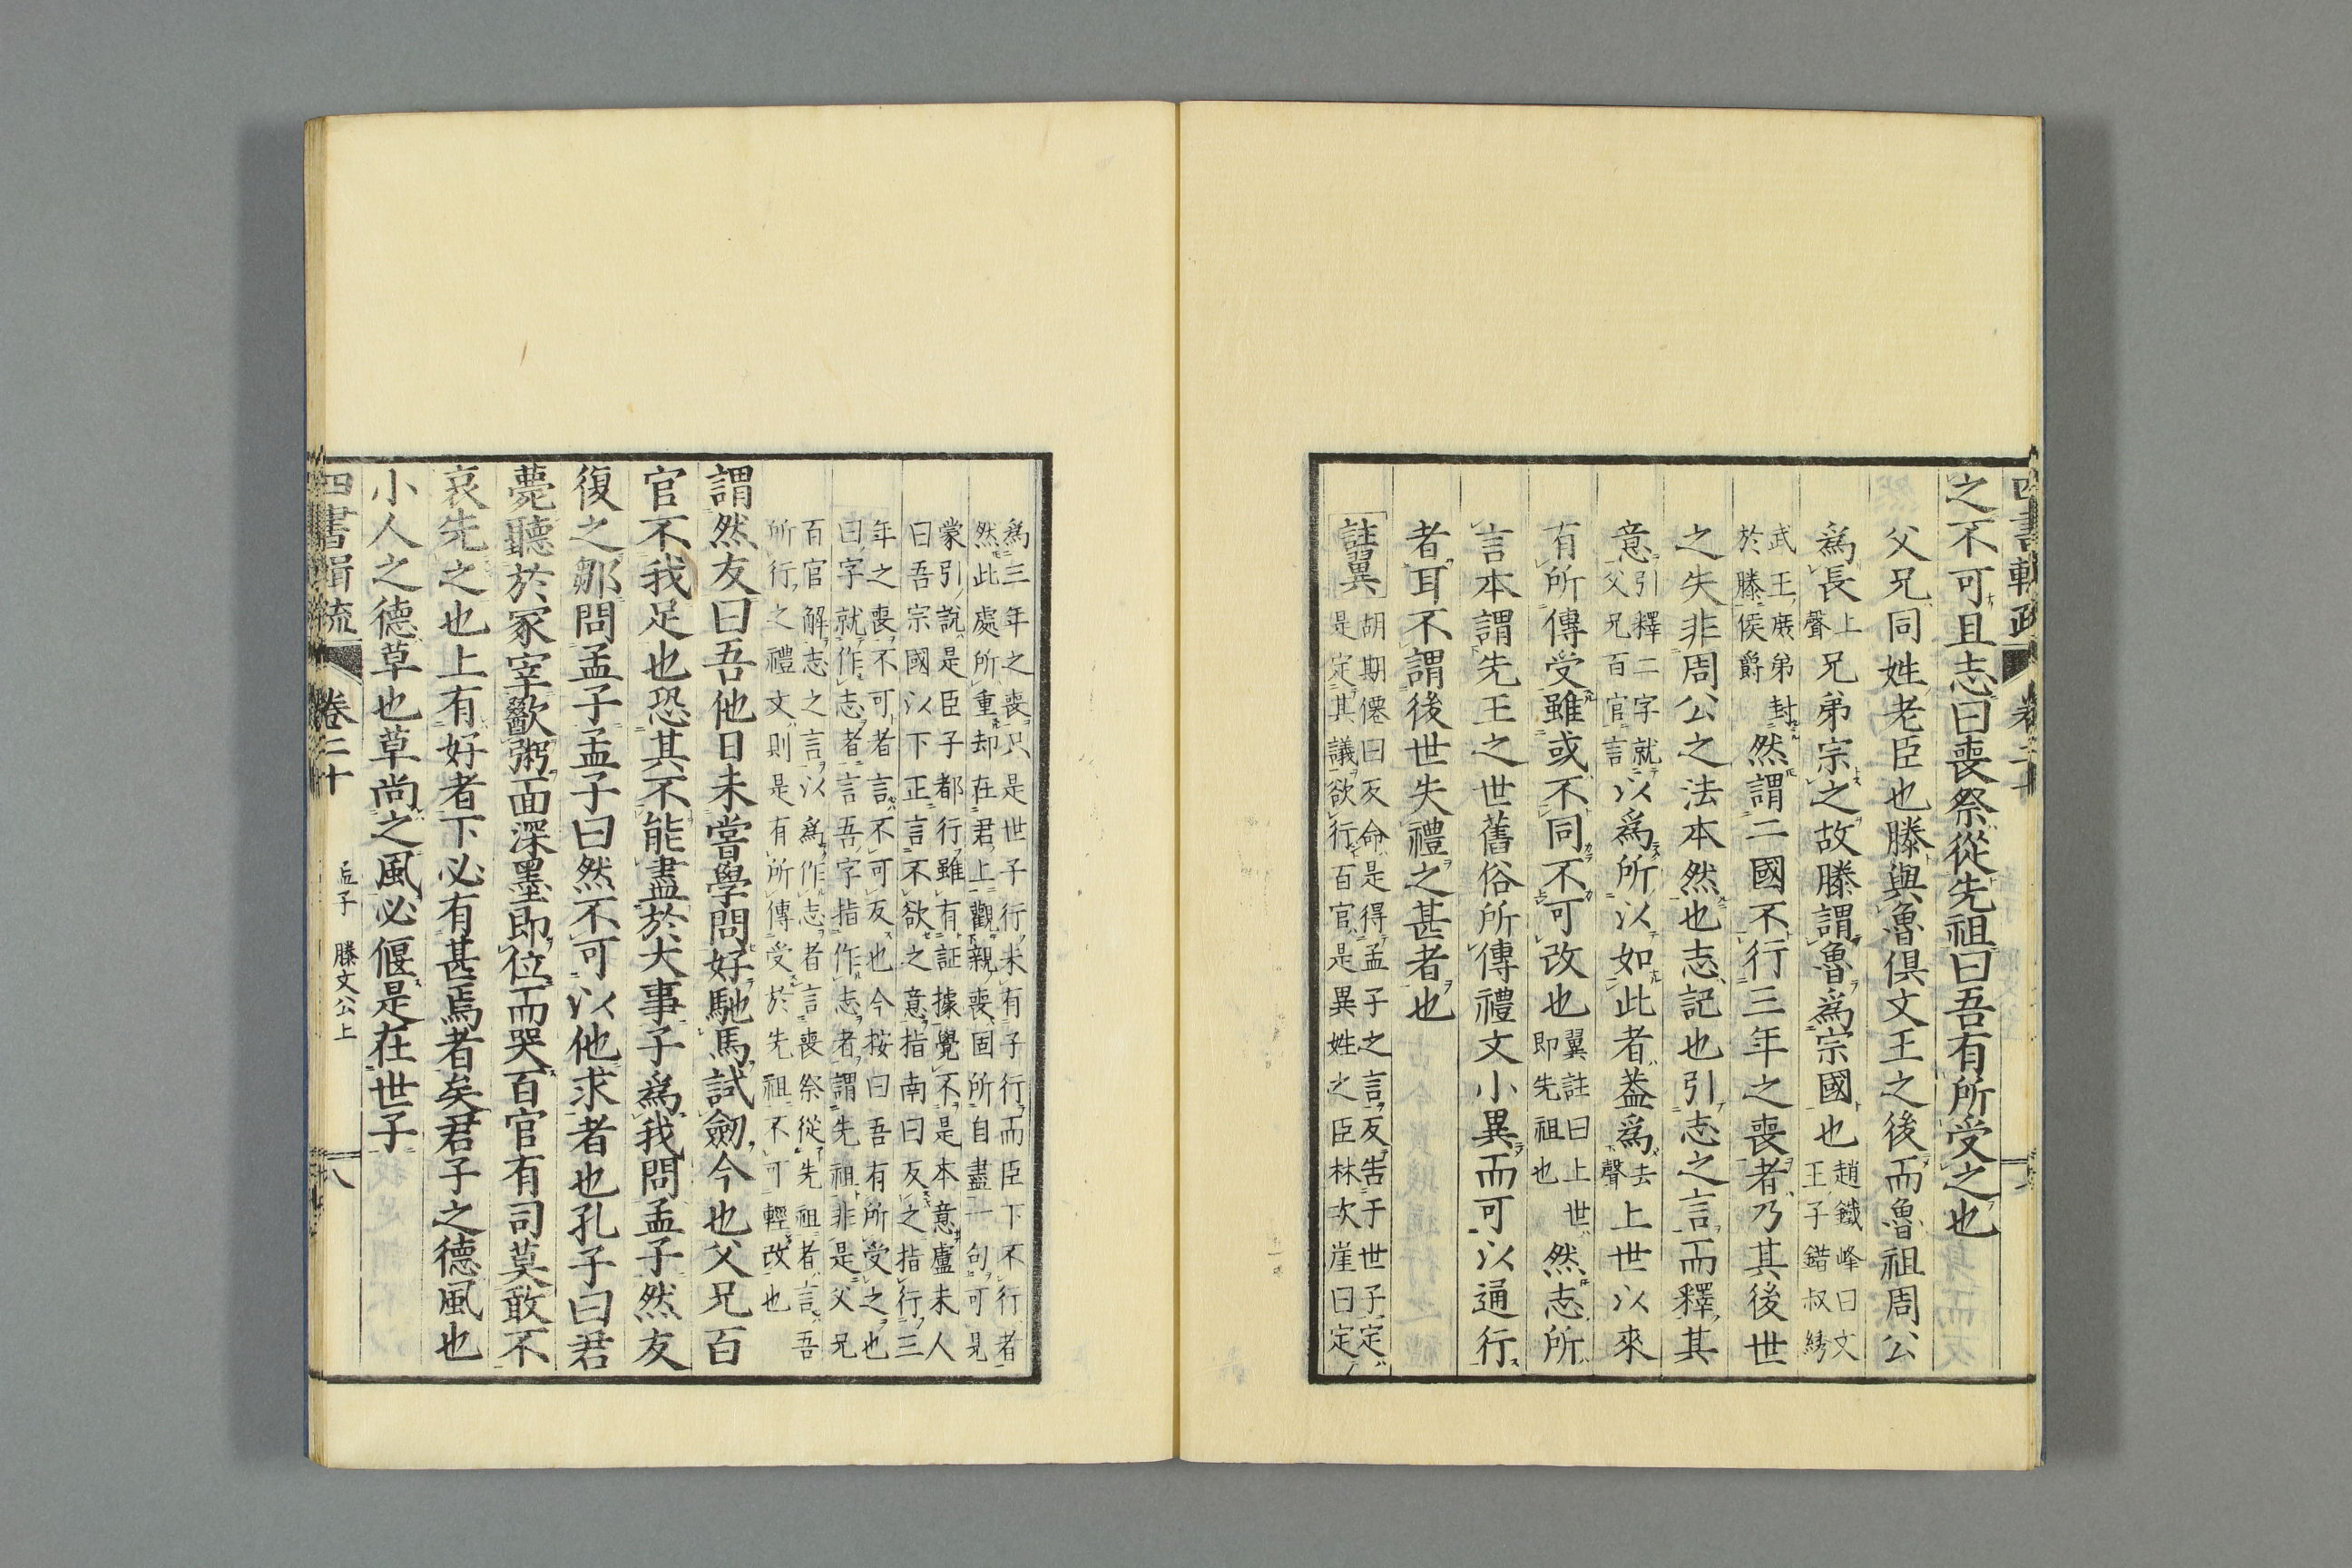 之不可且志曰喪祭從先祖曰吾有所受之也
父兄同姓老臣也滕與魯俱文王之後而魯祖周公
爲長上聲兄弟宗之故滕謂魯爲宗國也趙鐵峰曰文王子錯叔綉
武王庶弟封於滕侯爵然謂二國不行三年之喪者乃其後世
之失非周公之法本然也志記也引志之言而釋其
意引釋二字就父兄百官言以爲所以如此者蓋爲去聲上世以來
有所傳受雖或不同不可改也翼註曰上世即先祖也然志所
言本謂先王之世舊俗所傳禮文小異而可以通行
者耳不謂後世失禮之甚者也
註異
胡期僊曰反命是得孟子之言反吿于世子定
是定其議欲行百官是異姓之臣林次崖曰定
爲三年之喪只是世子行未有子行而臣下不行者
然此處所重却在君上觀親喪固所自盡一句可見
蒙引說是臣子都行雖有証據覺不是本意盧未人
曰吾宗國以下正言不欲之意指南曰反之指行三
年之喪不可者言不可反也今按曰吾有所受之也
曰字就作志者言吾字指作志者謂先祖非是父兄
百官解志之言以爲作志者言喪祭從先祖者言吾
所行之禮文則是有所傳受於先祖不可輕改也
謂然友曰吾他日未嘗學問好馳馬試劒今也父兄百
官不我足也恐其不能盡於大事子爲我問孟子然友
復之鄒問孟子孟子曰然不可以他求者也孔子曰君
薨聽於冢宰歠粥面深墨即位而哭百官有司莫敢不
哀先之也上有好者下必有甚焉者矣君子之德風也
小人之德草也草尚之風必偃是在世子
四書輯疏 卷二十 孟子 滕文公上 八